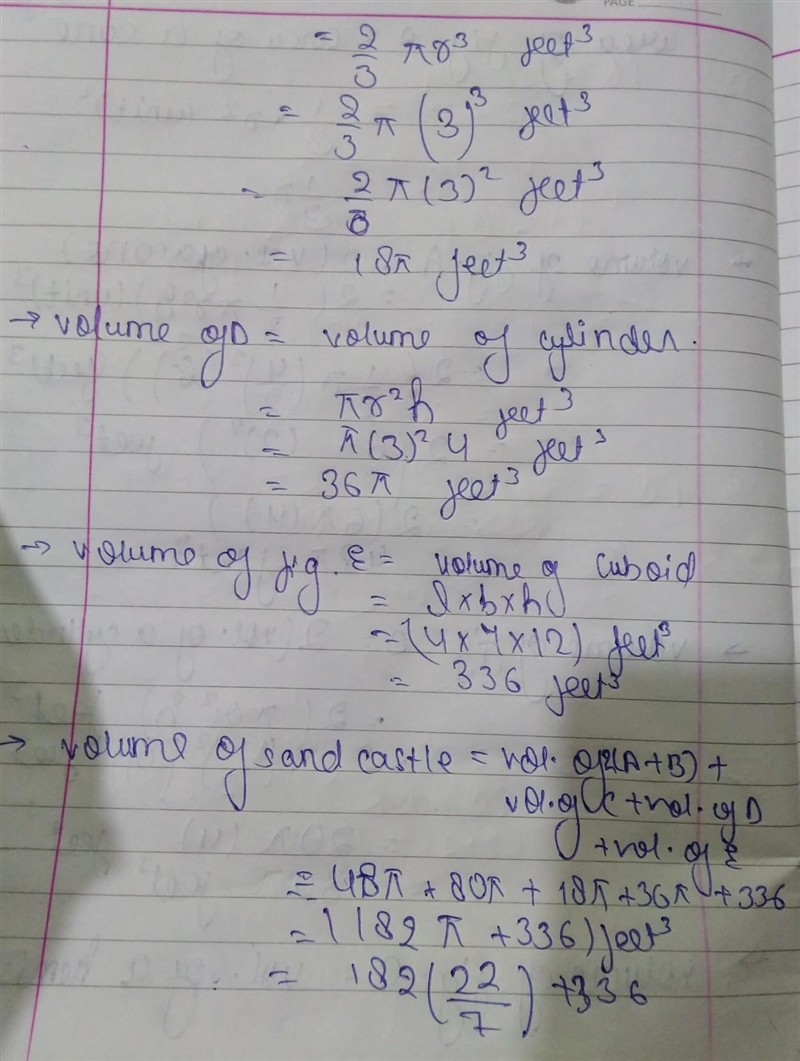 PAGE
= 2/3 πr³ feet³
= 2/3 π (3)³ feet³
= 2/3 π(3)² feet³
= 18π feet³
→ volume of D = volume of cylinder.
= πr²h feet³
= π(3)² 4 feet³
= 36π feet³
→ volume of fig. E = volume of cuboid
= l×b×h
= (4×7×12) feet³
= 336 feet³
→ volume of sand castle = vol. of 2(A+B) +
vol. of C + vol. of D
+ vol. of E
= 48π + 80π + 18π + 36π + 336
= (182 π + 336) feet³
= 182(22/7) + 336